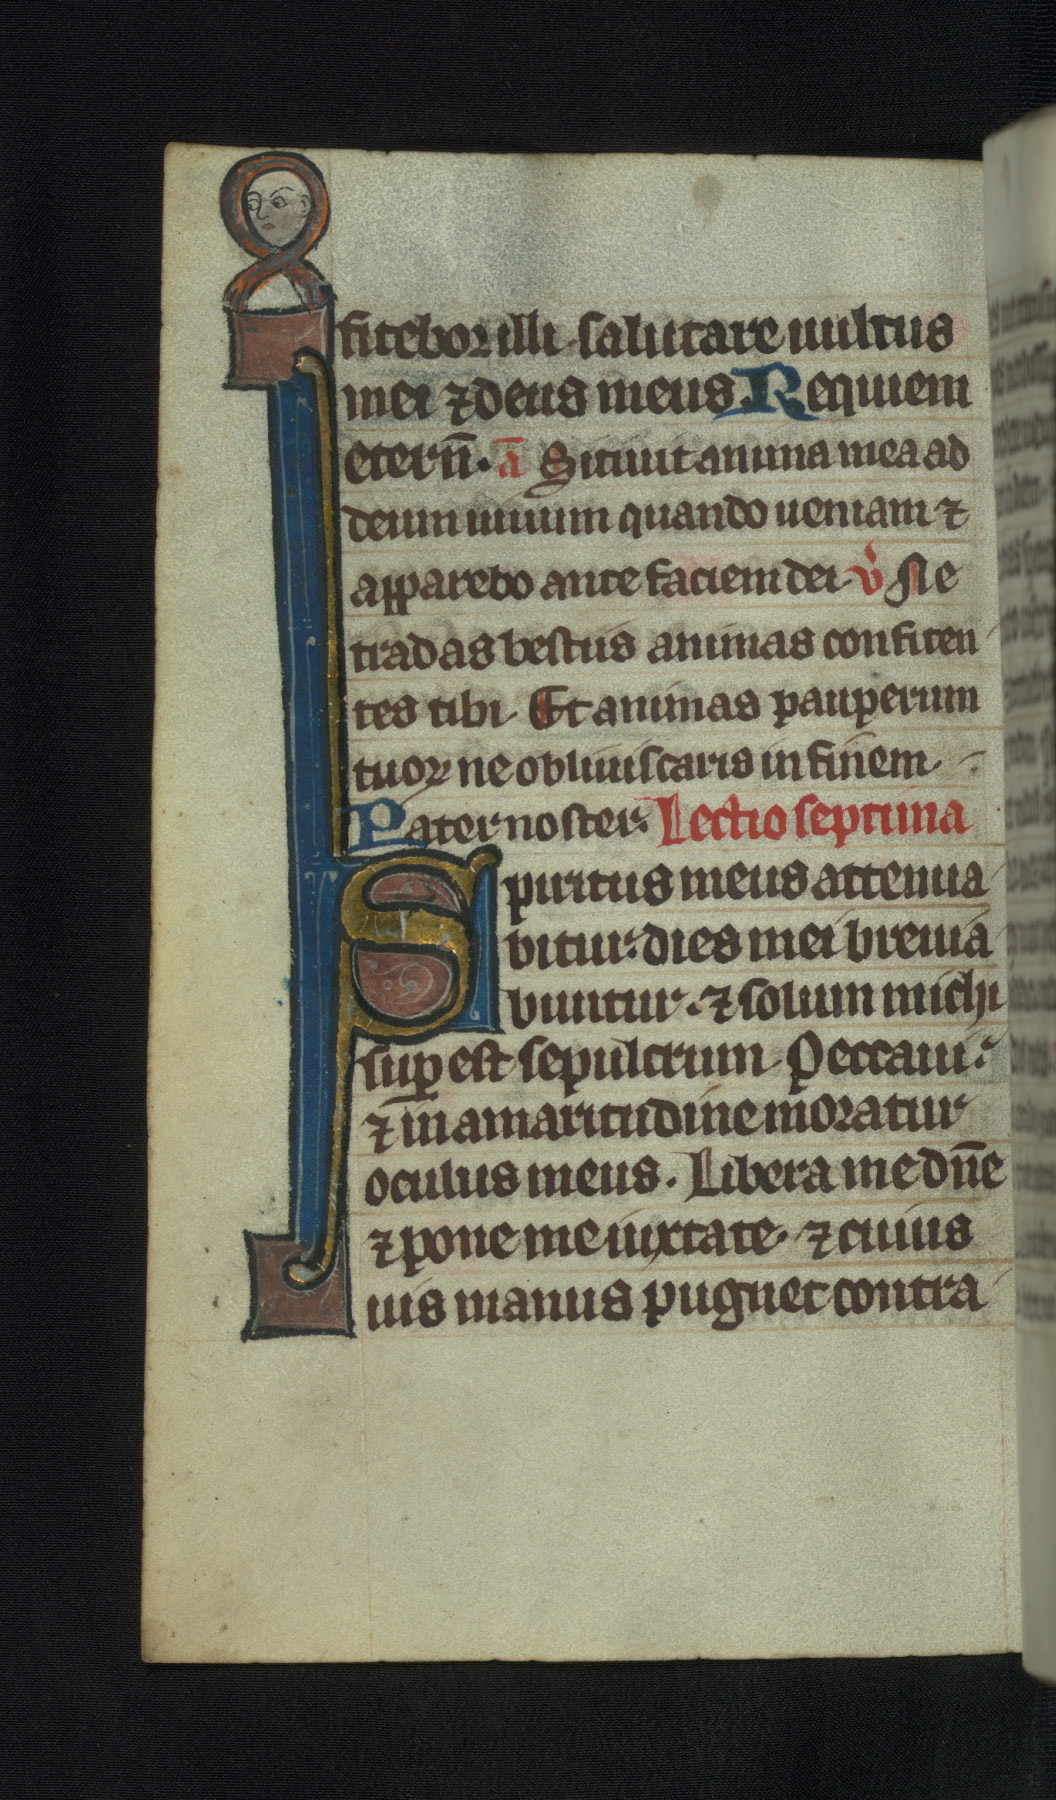 fitebor illi. salutare uultus
mei ⁊ deus meus. Requiem
etern̄. a̅ Sitiuit anima mea ad
deum uiuum quando ueniam ⁊
apparebo ante faciem dei. v̾ Ne
tradas bestiis animas confiten
tes tibi. Et animas pauperum
tuoꝝ ne obliuiscaris in finem.
Pater noster. Lectio septima
Spiritus meus attenua
bitur. dies mei breuia
buntur. ⁊ solum michi
suꝑ est sepulcrum. Peccaui.
⁊ in amaritudine moratur
oculus meus. Libera me dn̅e
⁊ pone me iuxta te. ⁊ cuius
uis manus pugnet contra